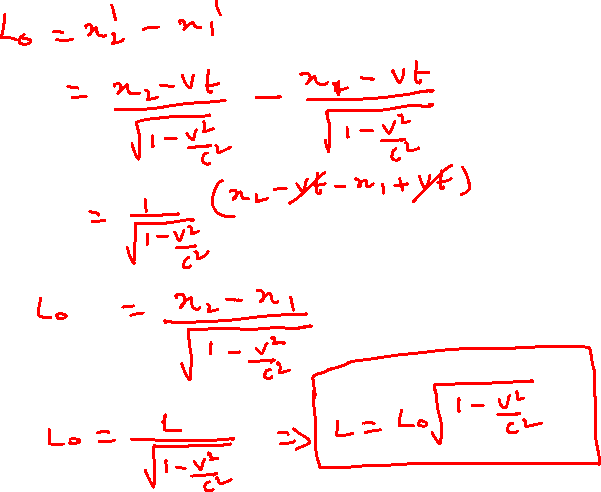 L₀ = x₂' - x₁'
= (x₂ - vt)/√(1 - v²/c²) - (x₁ - vt)/√(1 - v²/c²)
= 1/√(1 - v²/c²) (x₂ - vt - x₁ + vt)
L₀ = (x₂ - x₁)/√(1 - v²/c²)
L₀ = L/√(1 - v²/c²) ⇒ L = L₀√(1 - v²/c²)